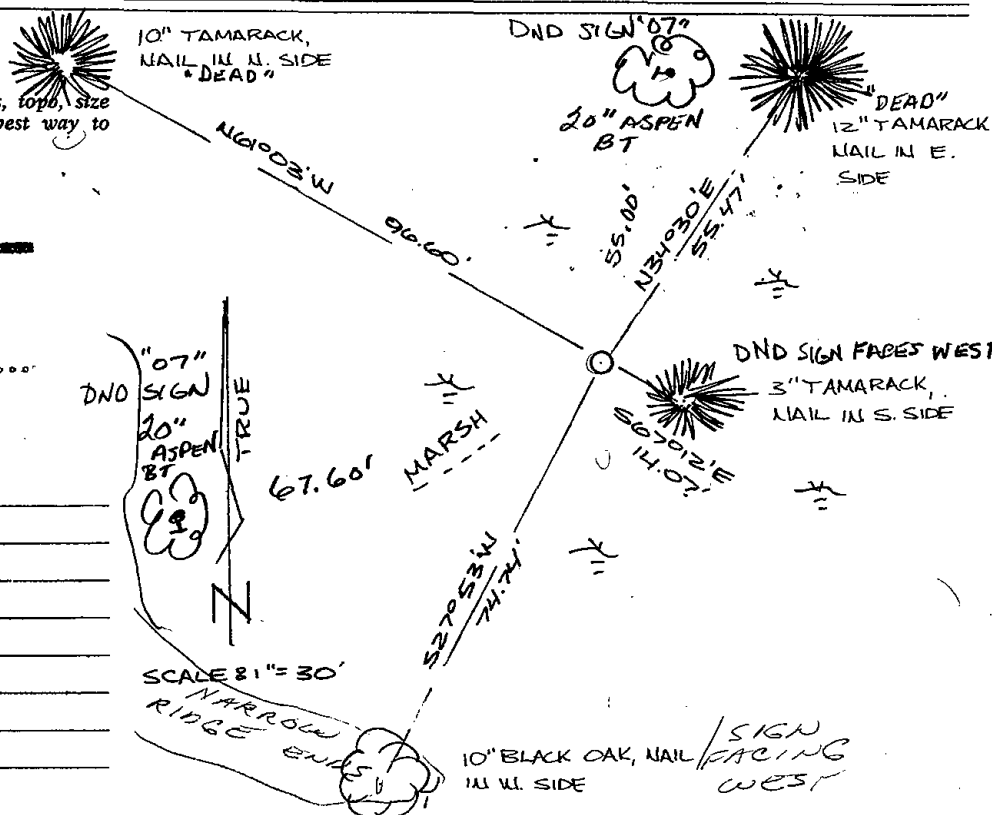 10" TAMARACK,
NAIL IN N. SIDE
"DEAD"
DND SIGN "07"
20" ASPEN
BT
"DEAD"
12" TAMARACK
NAIL IN E.
SIDE
s, topo, size
best way to
N61°03'W
96.60'
55.00'
N34°30'E
55.47'
DND SIGN FACES WEST
3" TAMARACK,
NAIL IN S. SIDE
S67°12'E
14.07'
"07"
DND SIGN
20"
ASPEN
BT
TRUE
N
67.60'
MARSH
S27°53'W
74.74'
SCALE 1"=30'
NARROW
RIDGE ENDS
10" BLACK OAK, NAIL
IN W. SIDE
SIGN
FACING
WEST